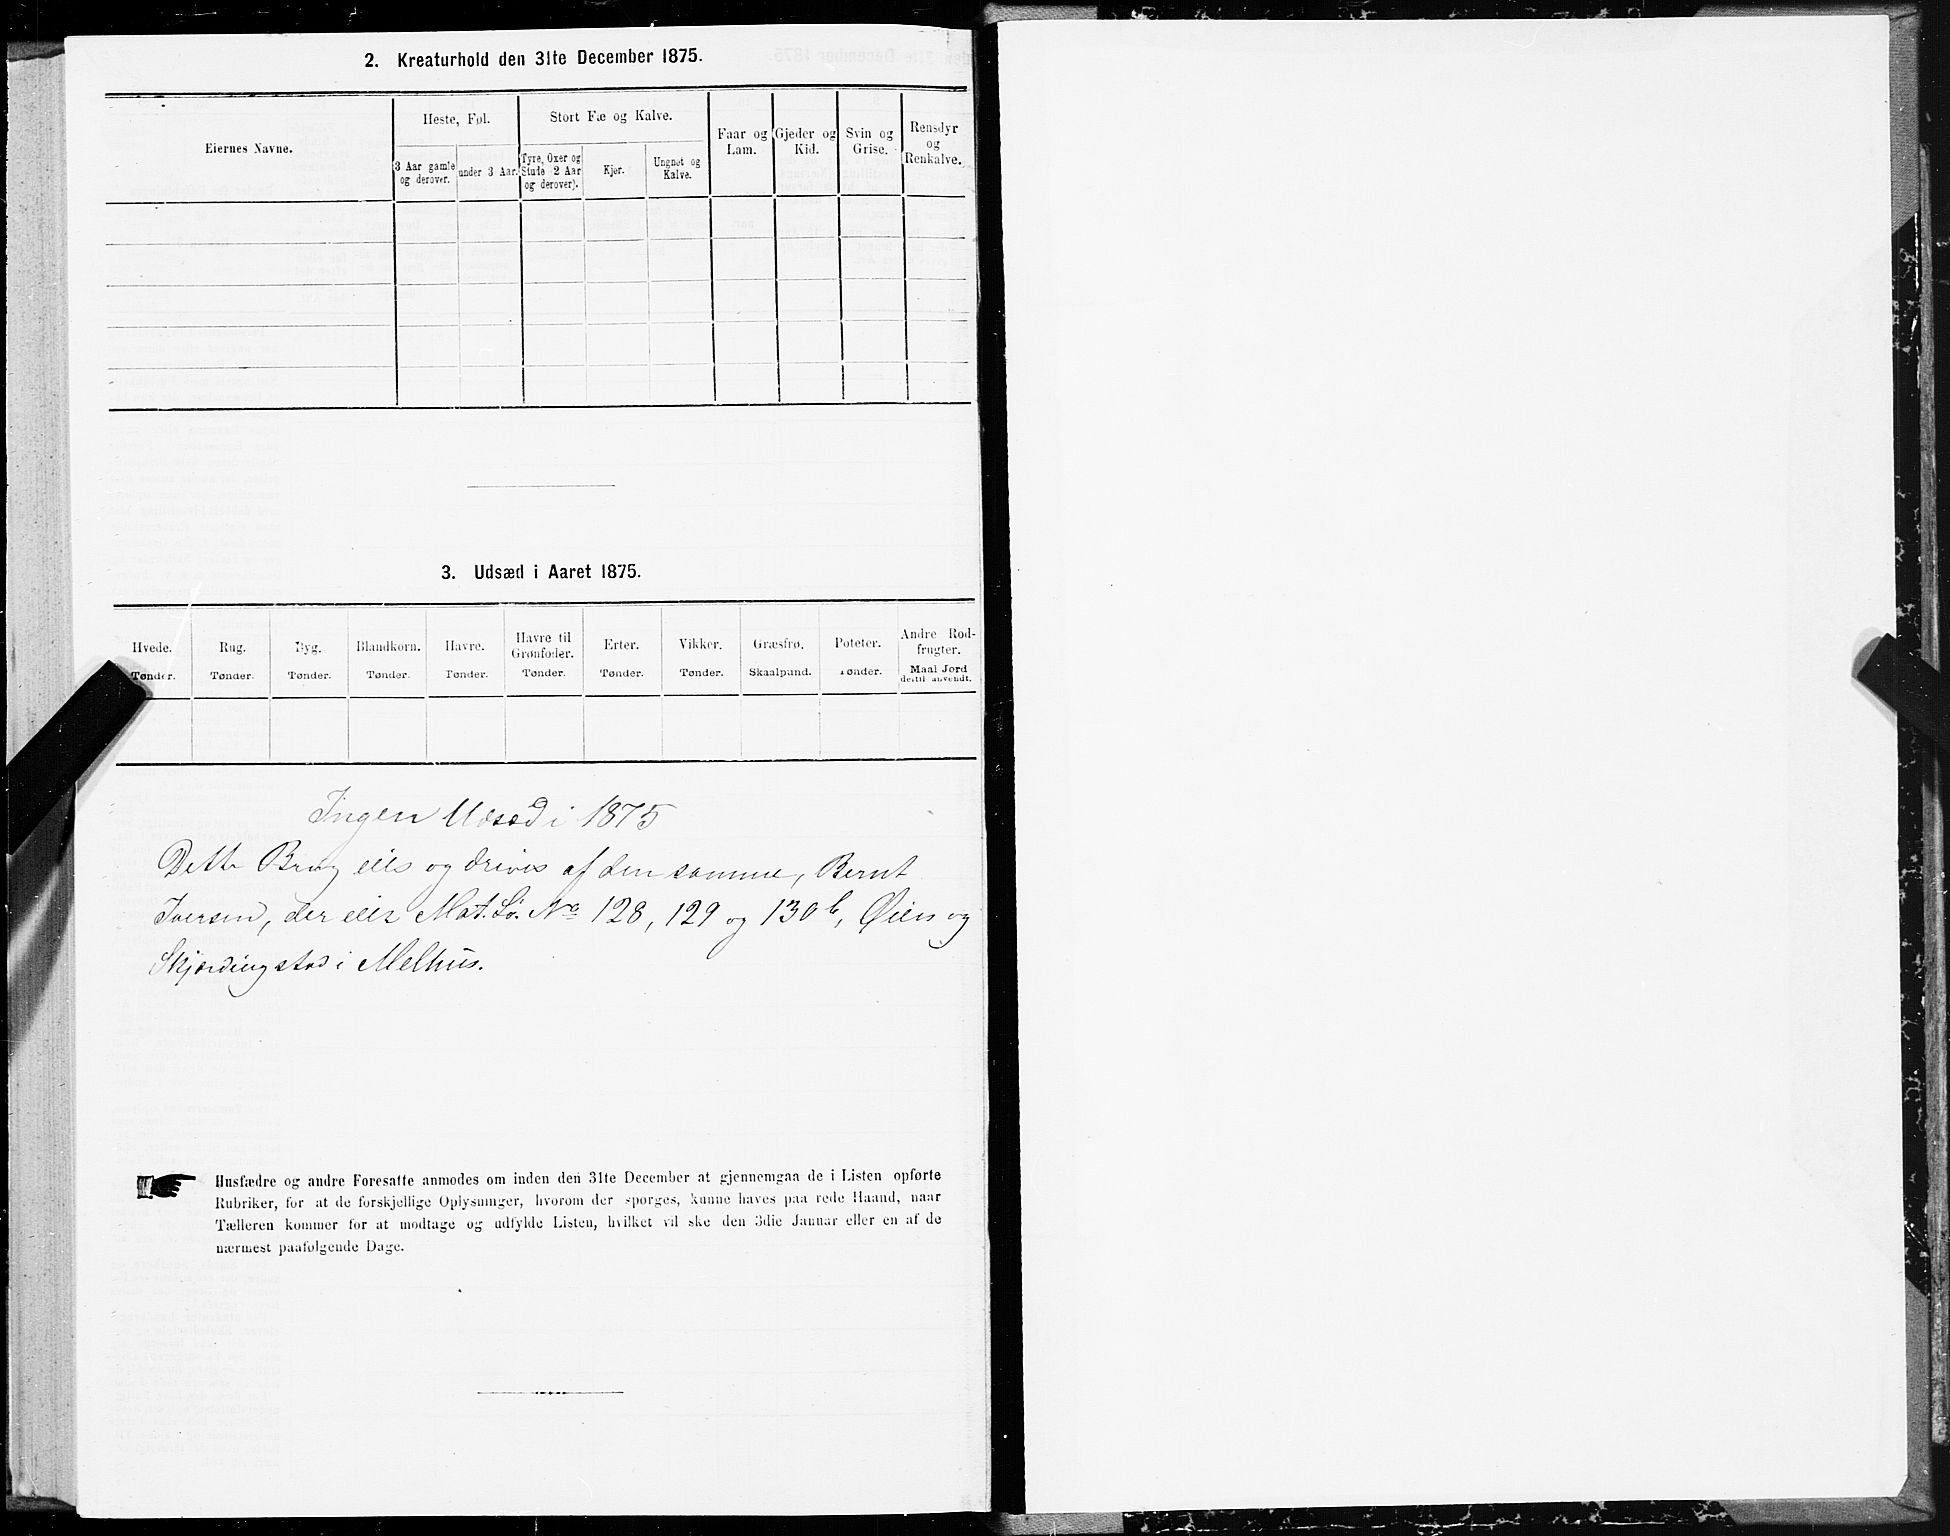 2. Kreaturhold den 31te December 1875.
Eiernes Navne.
Heste, Føl.
Stort Fæ og Kalve.
Faar og
Lam.
Gjeder og
Kid.
Svin og
Grise.
Rensdyr
og
Renkalve.
3 Aar gamle
og derover.
under 3 Aar.
Tyre, Oxer og
Stude 2 Aar
og derover).
Kjør.
Ungnøt og
Kalve.
3. Udsæd i Aaret 1875.
Hvede.
Tønder.
Rug.
Tønder.
Byg.
Tønder.
Blandkorn.
Tønder.
Havre.
Tønder.
Havre til
Grønfoder.
Tønder.
Erter.
Tønder.
Vikker.
Tønder.
Græsfrø.
Skaalpund.
Poteter.
Tønder.
Andre Rod-
frugter.
Maal Jord
dertil anvendt.
Ingen Udsæd i 1875
Dette Brug eies og drives af den samme, Bernt
Iversen, der eier Mat. Lø. No 128, 129 og 130b, Øien og
Skjerdingstad i Melhus.
Husfædre og andre Foresatte anmodes om inden den 31te December at gjennemgaa de i Listen opførte
Rubriker, for at de forskjellige Oplysninger, hvorom der spørges, kunne haves paa rede Haand, naar
Tælleren kommer for at modtage og udfylde Listen, hvilket vil ske den 3die Januar eller en af de
nærmest paafølgende Dage.